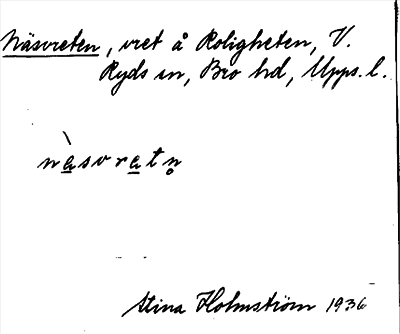 Näsvreten, vret å Roligheten, V.
Ryds sn, Bro hd, Upps. l.
nä̀svratn̥
Stina Holmström 1936